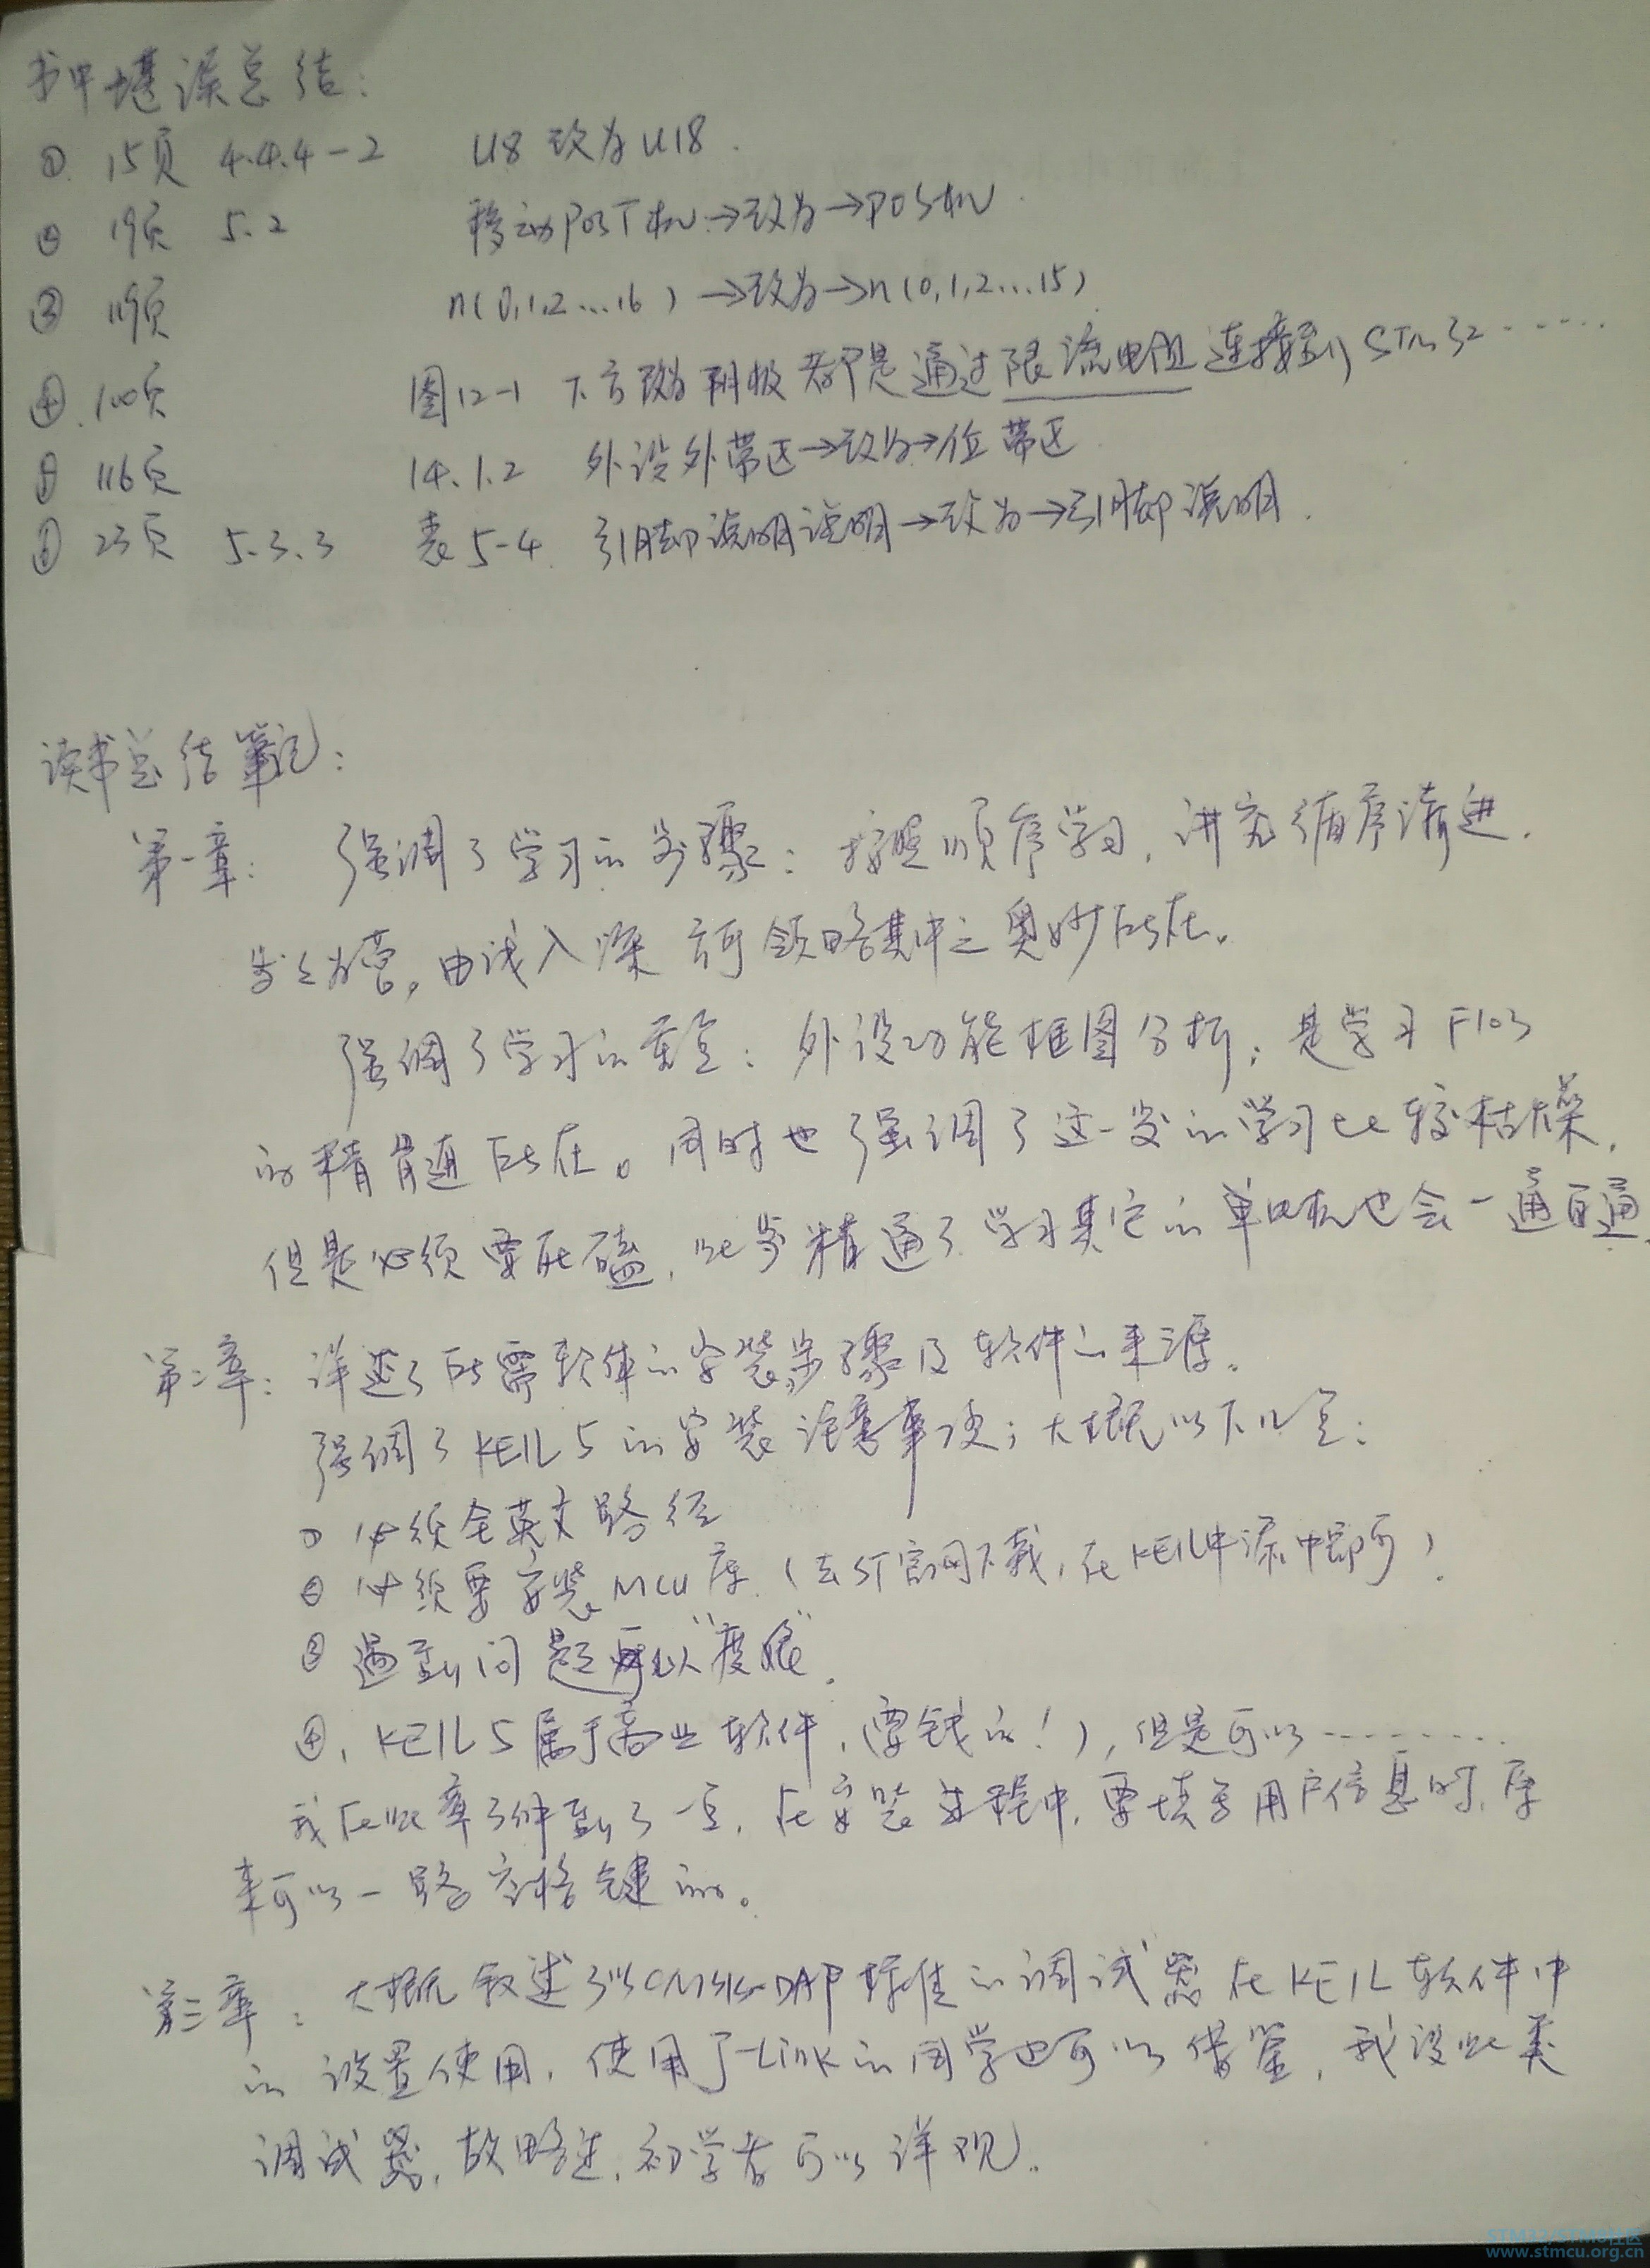 书中堪误总结：
① 15页 4.4.4-2 U8 改为 U18.
② 19页 5.2 移动POST机→改为→POS机
③ 119页 n(0,1,2...16)→改为→n(0,1,2...15)
④ 100页 图12-1 下方改为 阴极都是通过限流电阻连接到STM32······
⑤ 116页 14.1.2 外设外带区→改为→位带区
⑥ 23页 5.3.3 表5-4 引脚说明说明→改为→引脚说明.
读书总结笔记：
第一章： 强调了学习的步骤：按照顺序学习，讲究循序渐进.
步步为营。由浅入深 方可领略其中之奥妙所在。
强调了学习的重点：外设功能框图分析；是学习F103
的精髓所在。同时也强调了这一步的学习比较枯燥，
但是必须要死磕，此步精通了 学习其它的单片机也会一通百通.
第二章：详述了所需软体的安装步骤及软件的来源。
强调了KEIL5的安装注意事项；大概以下几点：
① 必须全英文路径
② 必须要安装MCU库（去ST官网下载，在KEIL中添加即可）.
③ 遇到问题可以"度娘".
④，KEIL5属于商业软件，（要钱的！），但是可以········
我在此章了解到了一点，在安装过程中，要填写用户信息时，原
来可以一路空格键的。
第三章：大概叙述了以CMSIS-DAP标准的调试器在KEIL软件中
的设置使用，使用J-Link的同学也可以借鉴，我没此类
调试器，故略过，初学者可以详观.
STM32/STM8社区
www.stmcu.org.cn